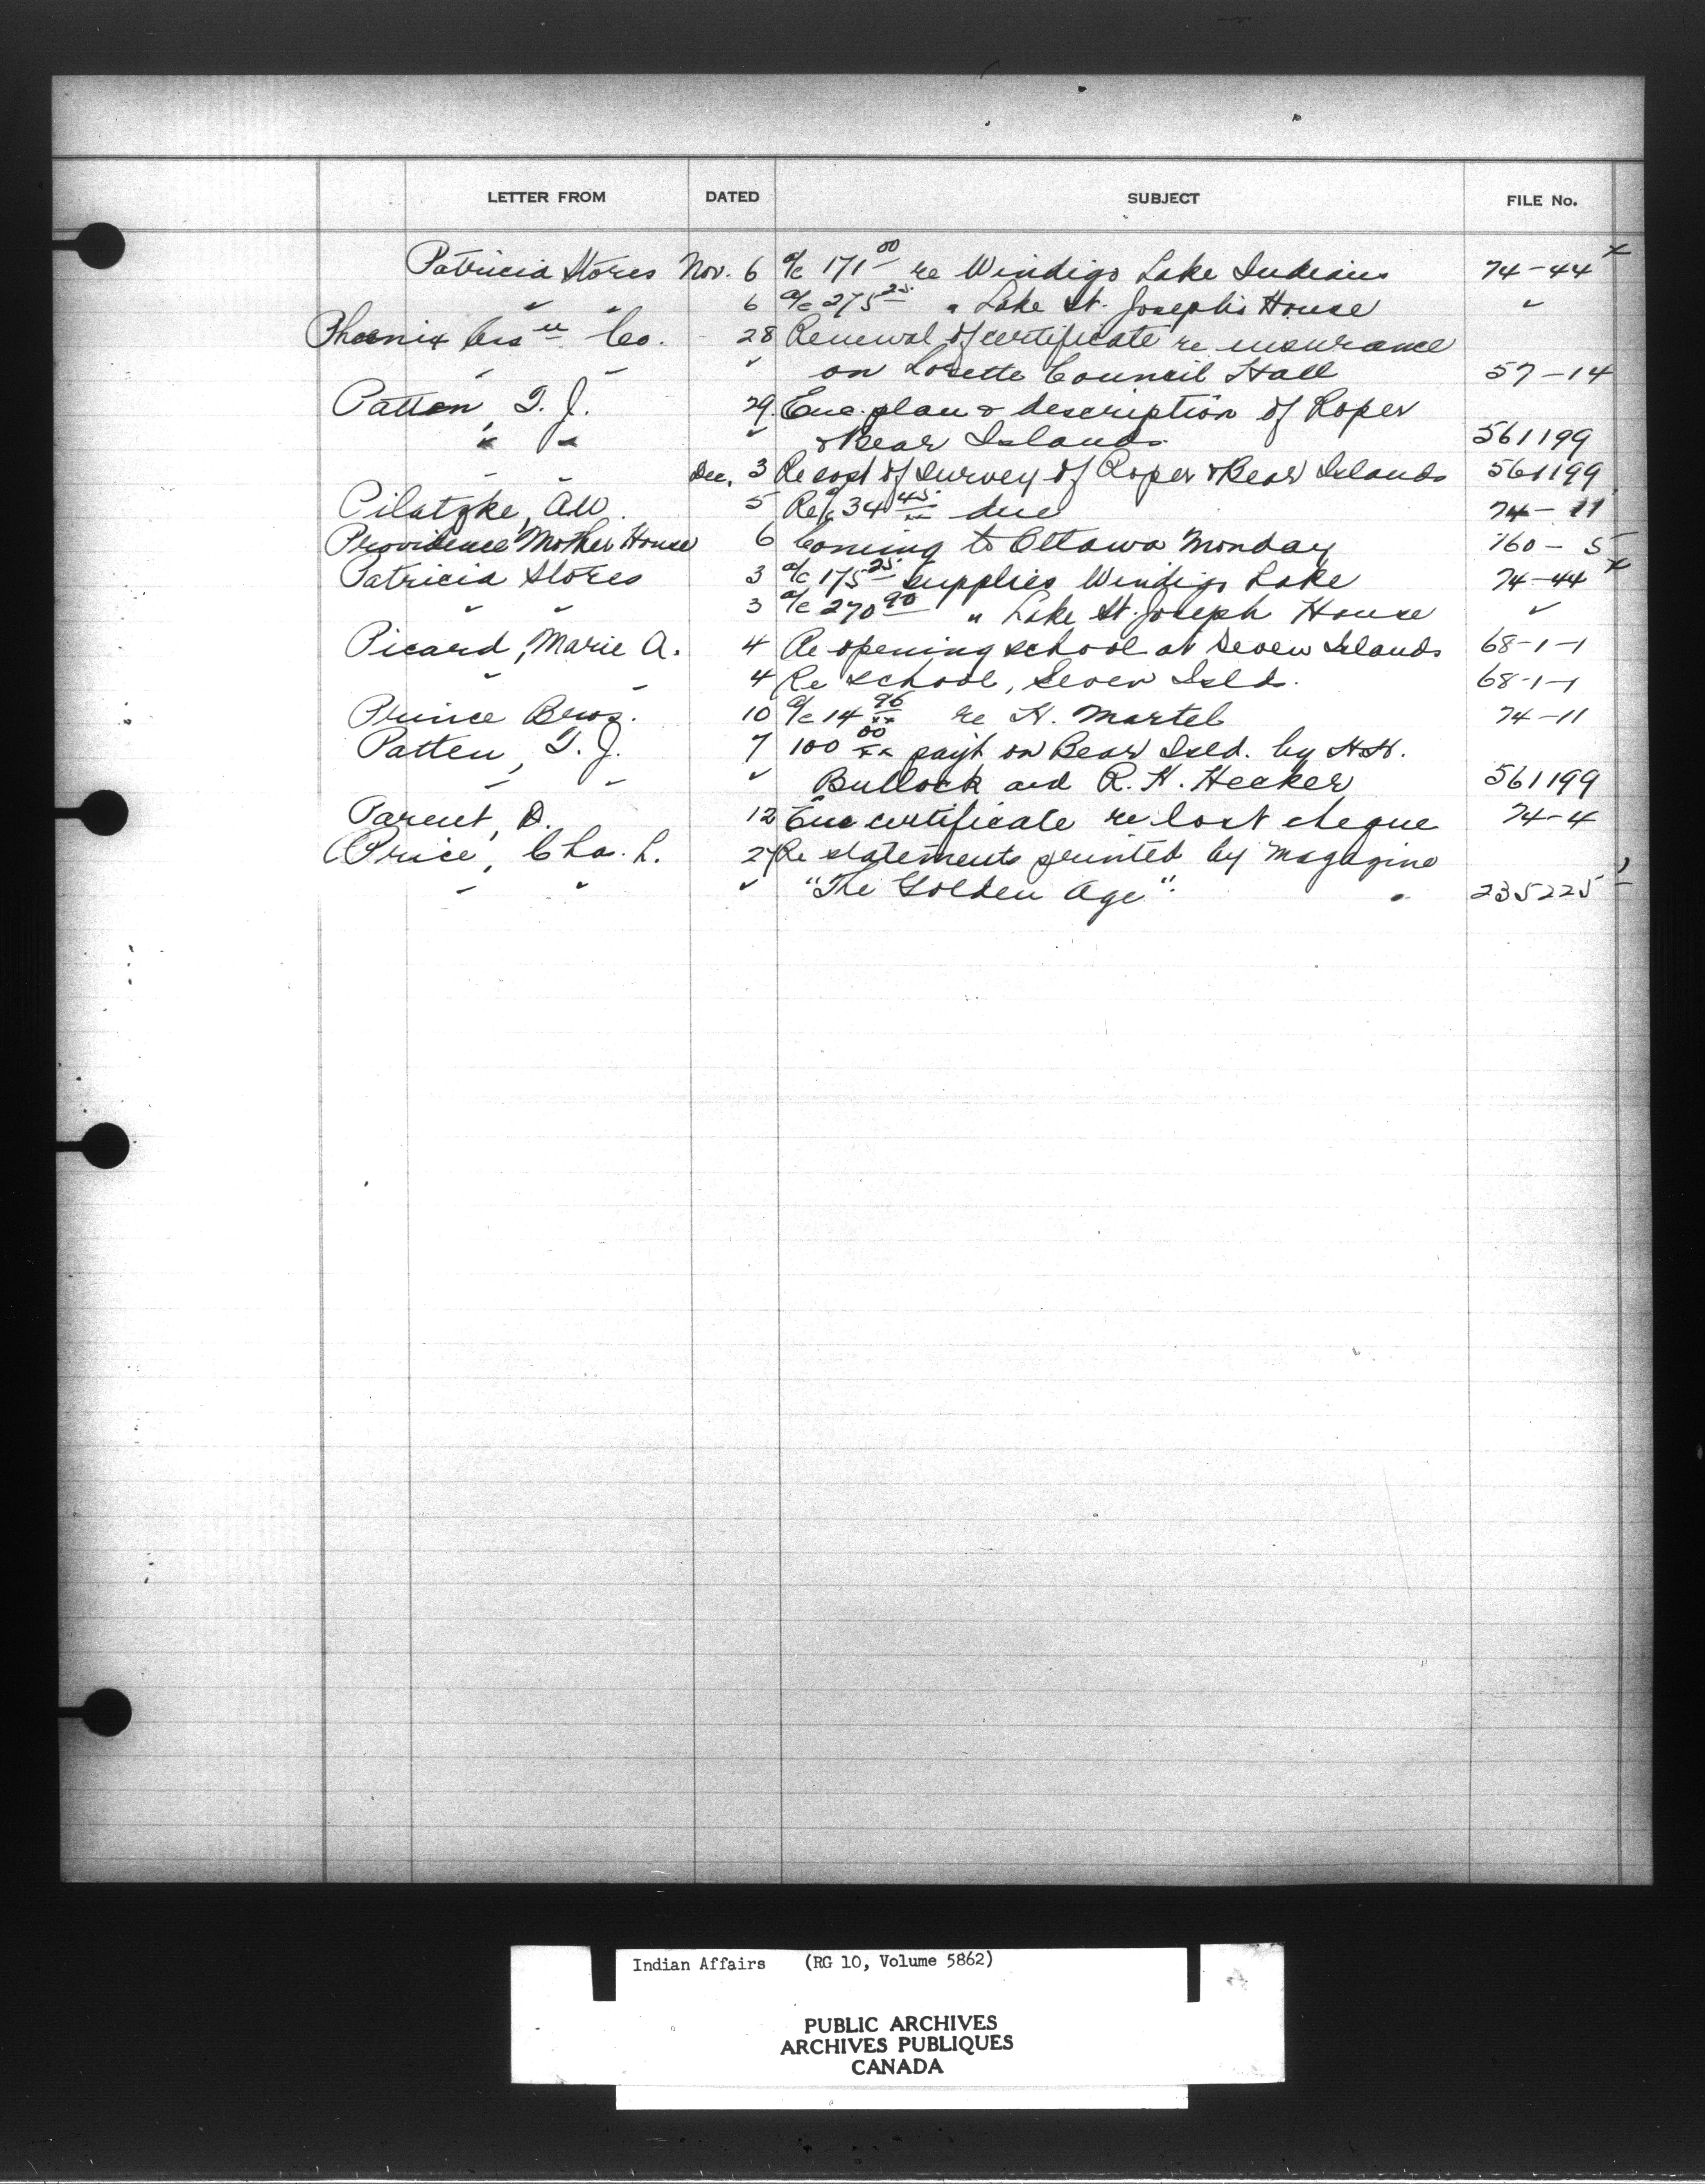 LETTER FROM DATED SUBJECT FILE No.
Patricia Stores Nov. 6 a/c 171 00 re Windigo Lake Indians 74-44 x
" " 6 a/c 275 25 " Lake St. Joseph's House "
Phoenix Ass ce Co. 28 Renewal of certificate re insurance
" " " on Lorette Council Hall 57-14
Patten, T. J. 29 Enc. plan & description of Roper
" " " & Bear Islands 561199
" " Dec. 3 Re cost of survey of Roper & Bear Islands 561199
Pilatzke, A.W. 5 Re a/c 34 45 xx due 74-11
Providence Mother House 6 Coming to Ottawa Monday 160-5
Patricia Stores 3 a/c 175 25 supplies Windigo Lake 74-44 x
" " 3 a/c 270 90 " Lake St. Joseph House "
Picard, Marie A. 4 Re opening school at Seven Islands 68-1-1
" " 4 Re school, Seven Islds. 68-1-1
Prince Bros. 10 a/c 14 96 xx re H. Martel 74-11
Patten, T. J. 7 100 00 xx payt on Bear Isld. by H.H.
" " " Bullock and R. H. Hecker 561199
Parent, D. 12 Enc certificate re lost cheque 74-4
Price, Chas. L. 27 Re statements printed by magazine
" " " "The Golden Age". 235225
Indian Affairs (RG 10, Volume 5862)
PUBLIC ARCHIVES
ARCHIVES PUBLIQUES
CANADA